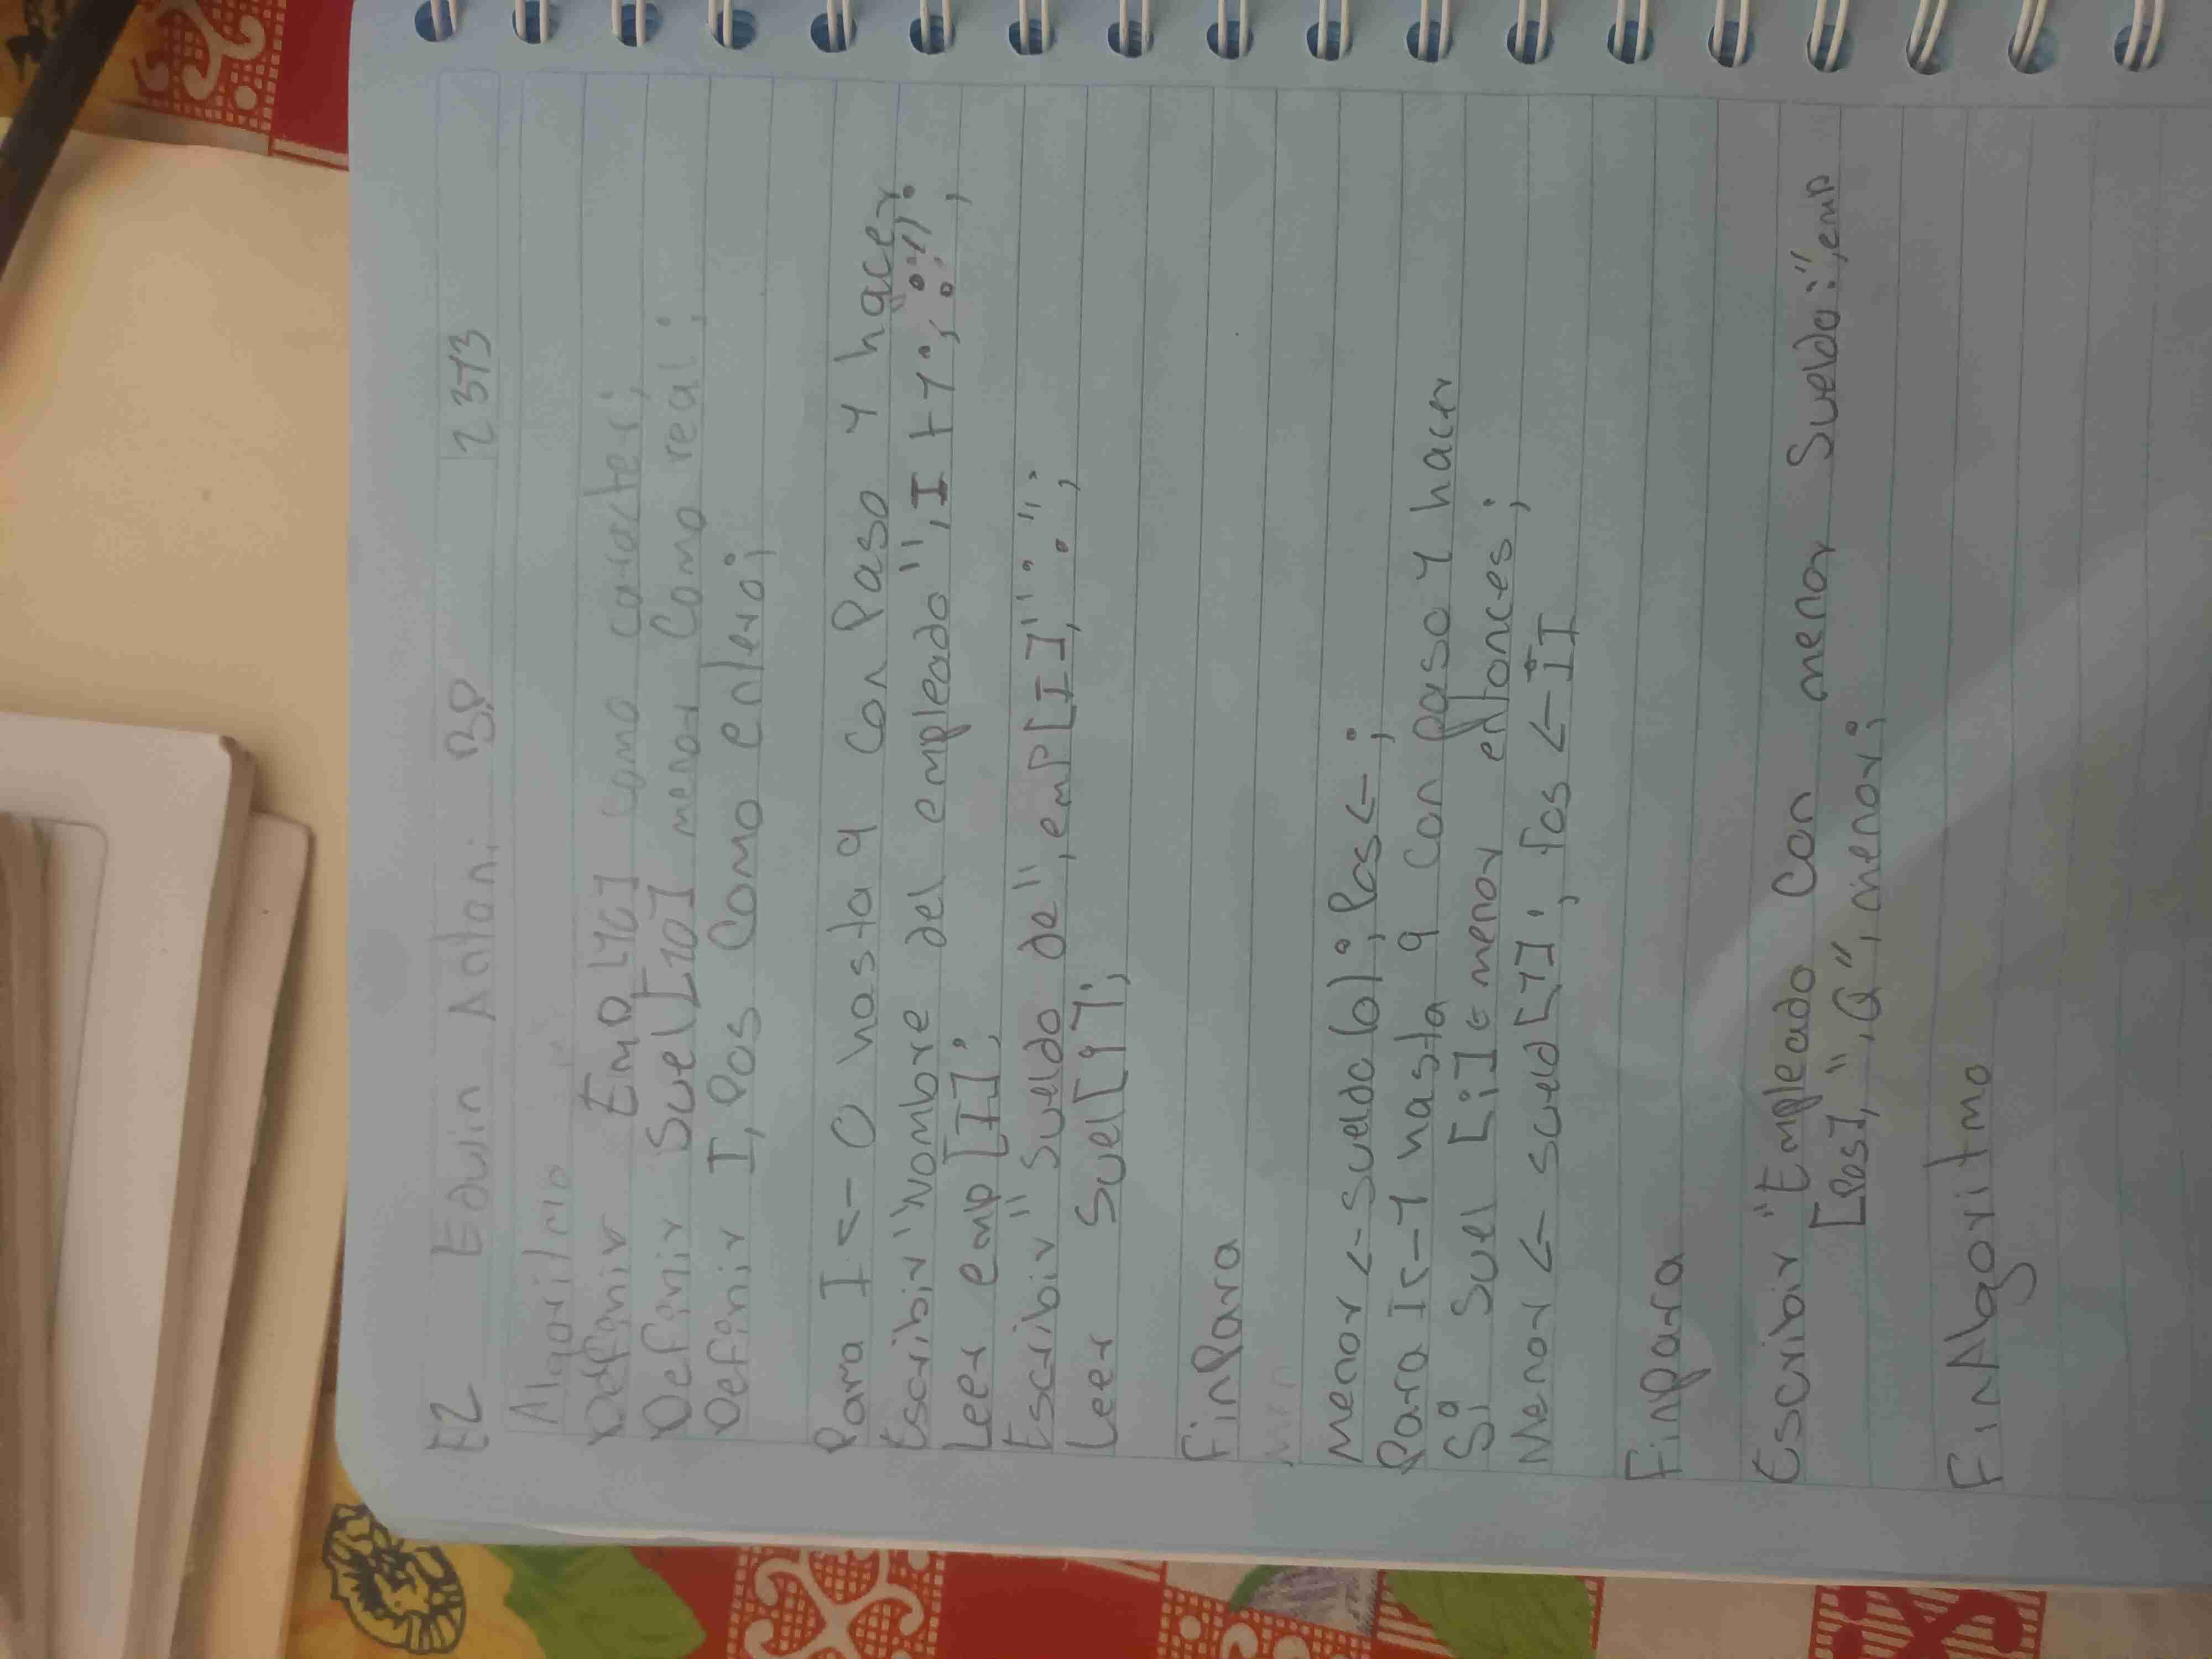 E2 Edwin Antoni 3P 2373
Algoritmo
Definir Emp [10] como caracter;
Definir Suel[10] menor Como real;
Definir I, Pos Como entero;
Para I <- 0 hasta 9 Con Paso 1 hacer
Escribir "Nombre del empleado", I + 1;
Leer emp [I];
Escribir "Sueldo de", emp [I] ":";
Leer Suel[i];
FinPara
Menor <- Sueldo (0); Pos <- ;
Para I <- 1 hasta 9 Con paso 1 hacer
Si Suel [i] < menor entonces;
Menor <- sueld[1]; Pos <- I
Finpara
Escribir "Empleado Con menor Sueldo:", emp
[Pos], ", Q", menor;
FinAlgoritmo